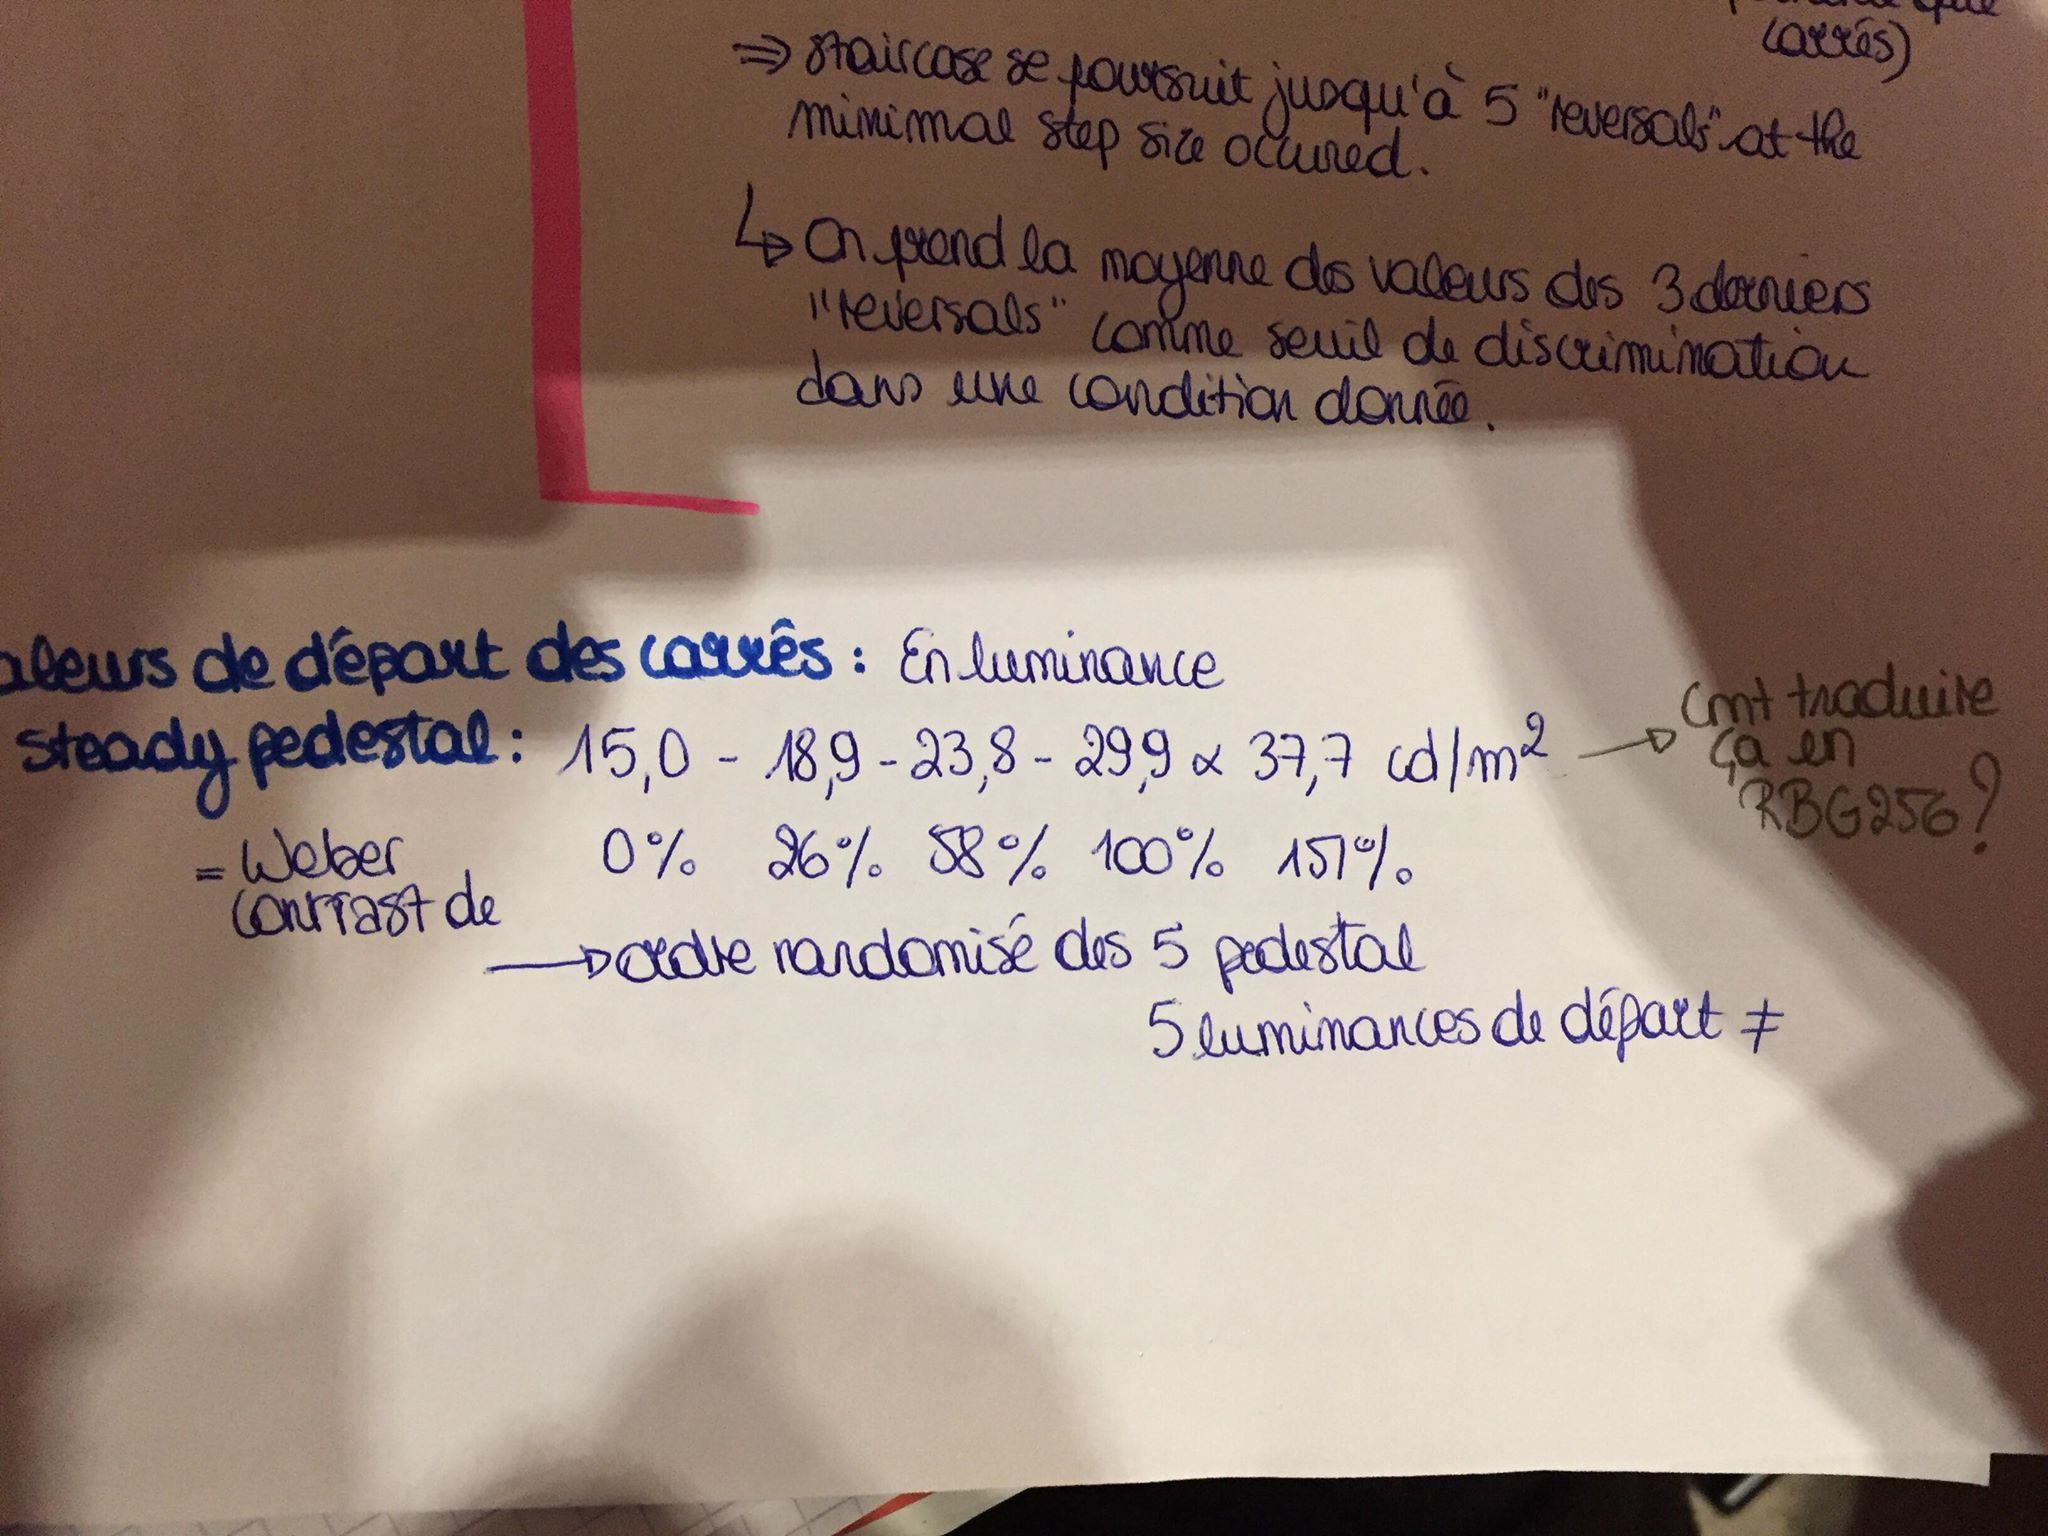 carrés)
⇒ staircase se poursuit jusqu'à 5 "reversals" at the
minimal step size occured.
↳ On prend la moyenne des valeurs des 3 derniers
"reversals" comme seuil de discrimination
dans une condition donnée.
aleurs de départ des carrés : En luminance
steady pedestal : 15,0 - 18,9 - 23,8 - 29,9 & 37,7 cd/m²
→ Cmt traduire
ça en
RBG256?
= Weber
contrast de
0% 26% 58% 100% 151%
→ ordre randomisé des 5 pedestal
5 luminances de départ ≠